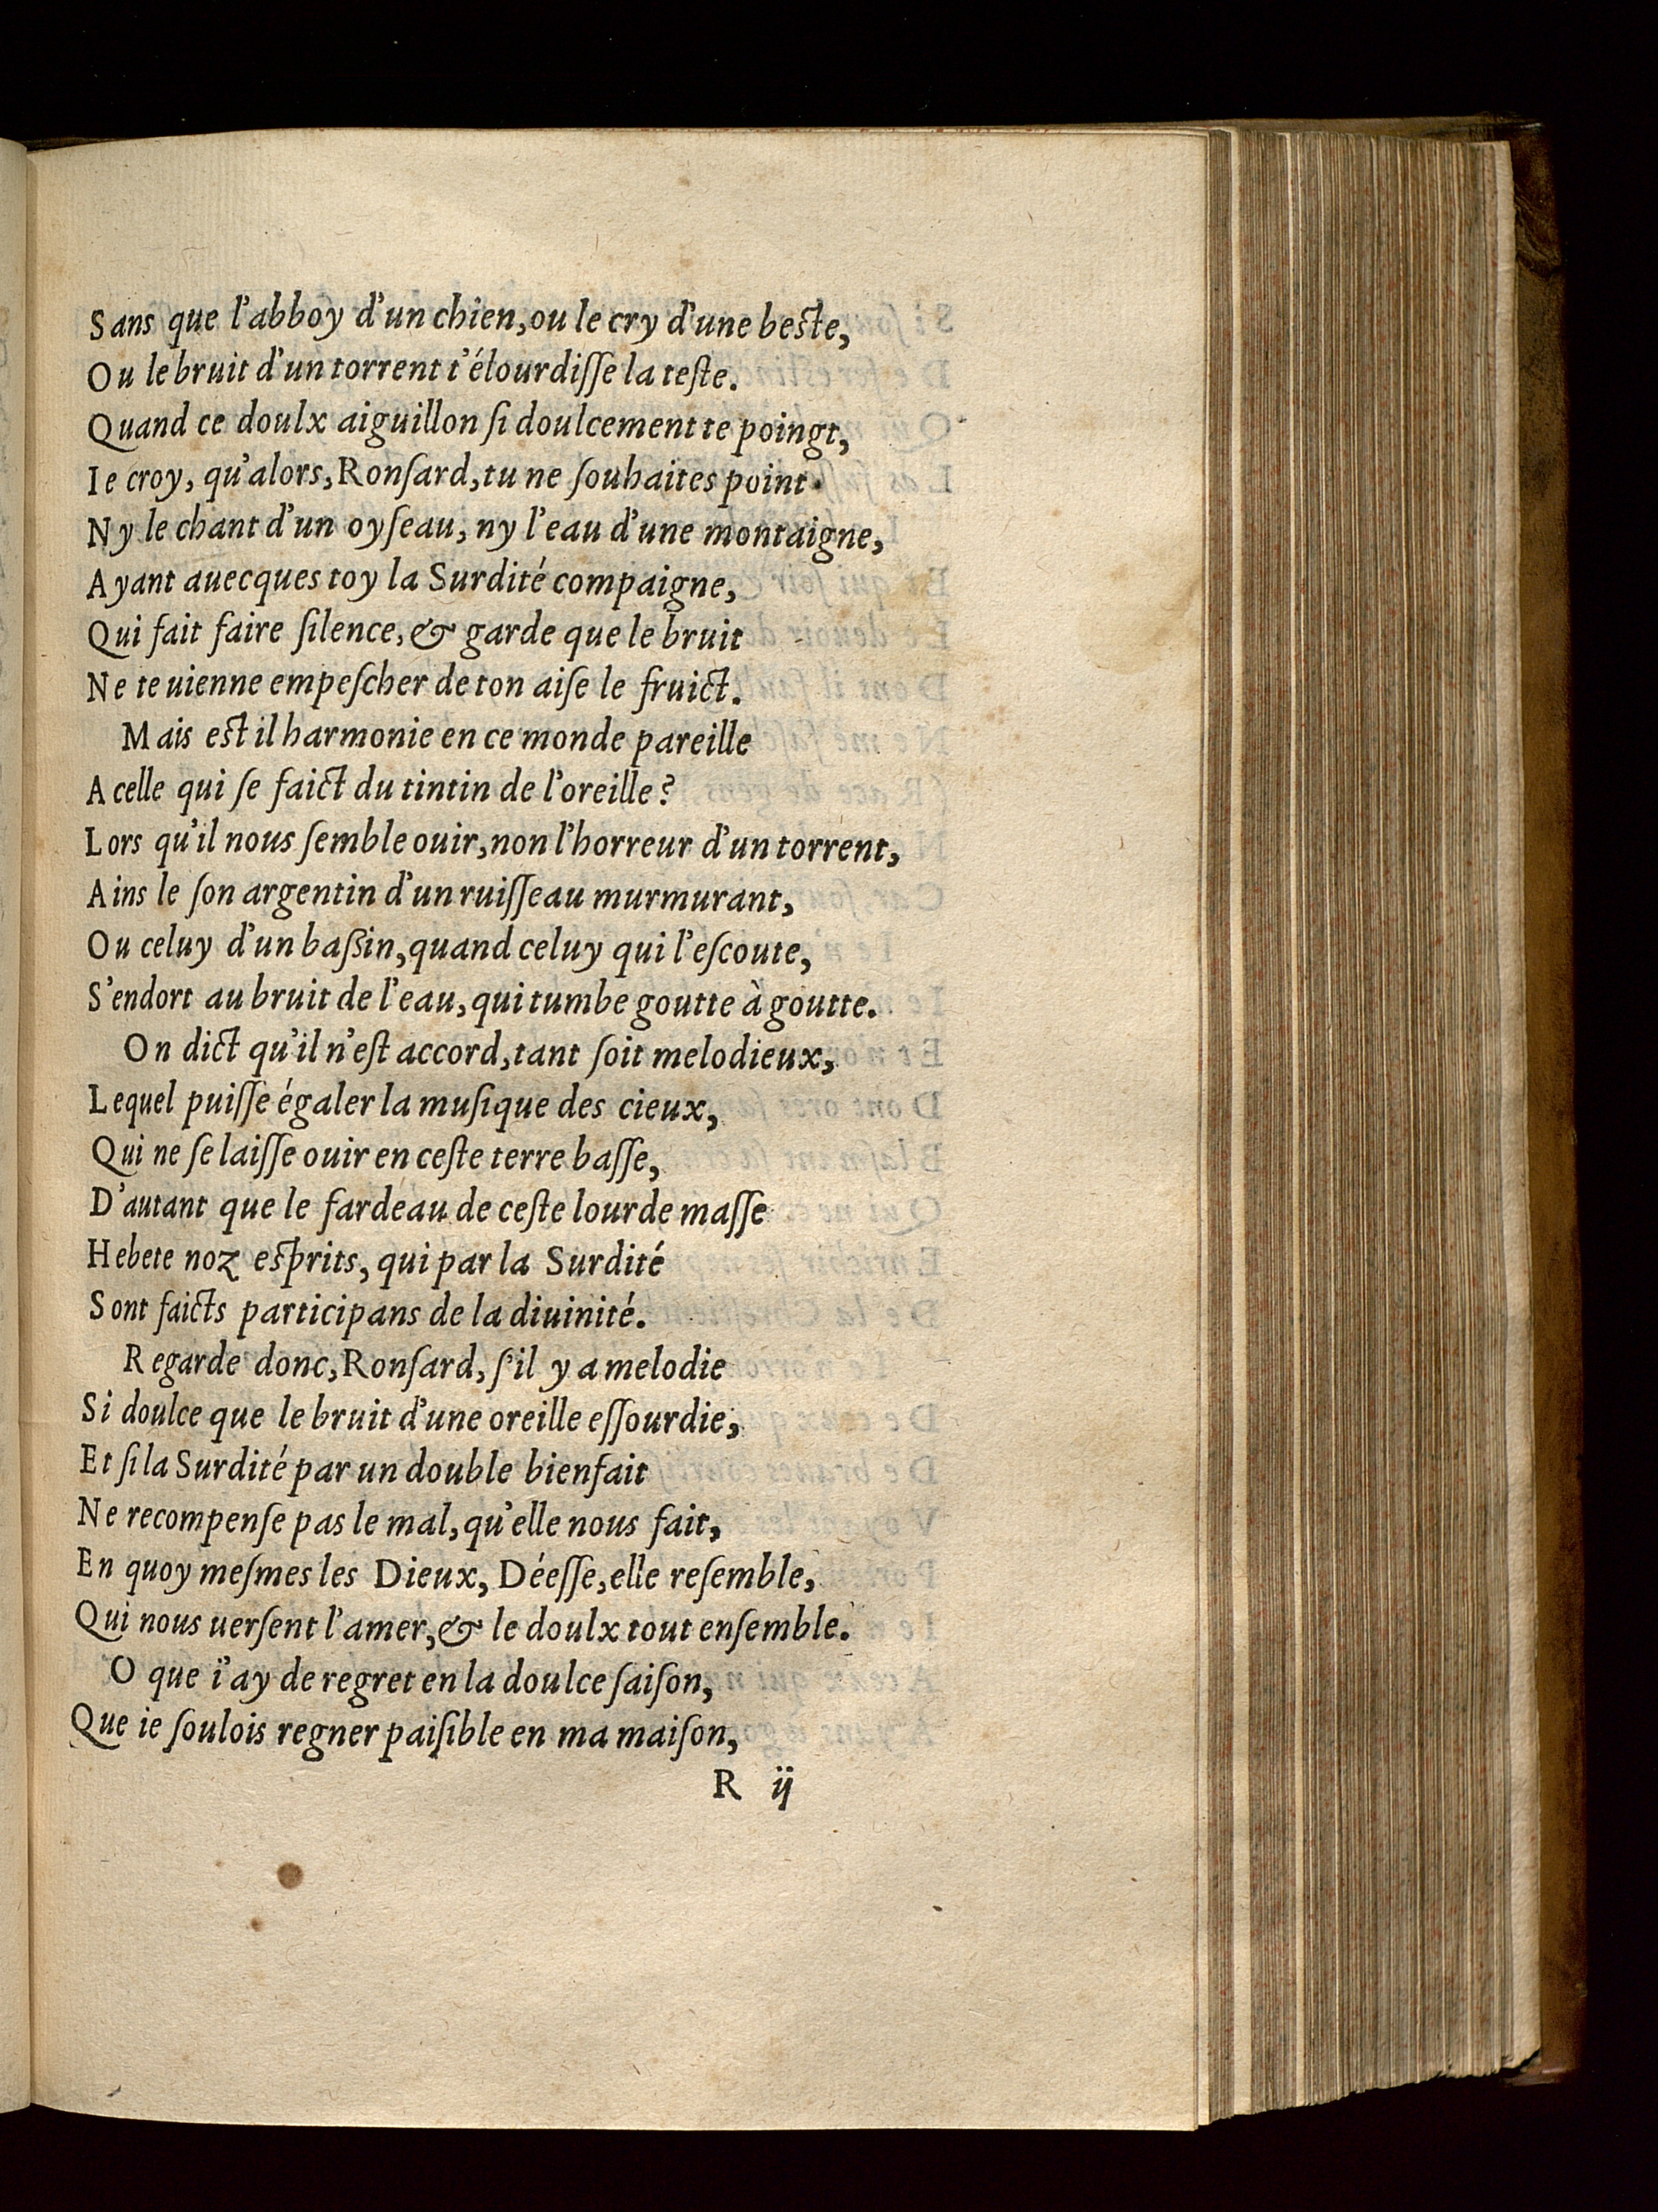 Sans que l'abboy d'un chien, ou le cry d'une beste,
Ou le bruit d'un torrent t'étourdiſſe la teſte.
Quand ce doulx aiguillon ſi doulcement te poingt,
Ie croy, qu'alors, Ronſard, tu ne ſouhaites point
Ny le chant d'un oyſeau, ny l'eau d'une montaigne,
Ayant auecques toy la Surdité compaigne,
Qui fait faire ſilence, & garde que le bruit
Ne te uienne empeſcher de ton aiſe le fruict.
Mais est il harmonie en ce monde pareille
A celle qui ſe faict du tintin de l'oreille?
Lors qu'il nous ſemble ouir, non l'horreur d'un torrent,
Ains le ſon argentin d'un ruiſſeau murmurant,
Ou celuy d'un baßin, quand celuy qui l'eſcoute,
S'endort au bruit de l'eau, qui tumbe goutte à goutte.
On dict qu'il n'eſt accord, tant ſoit melodieux,
Lequel puiſſe égaler la muſique des cieux,
Qui ne ſe laiſſe ouir en ceſte terre baſſe,
D'autant que le fardeau de ceſte lourde maſſe
Hebete noz esprits, qui par la Surdité
Sont faicts participans de la diuinité.
Regarde donc, Ronſard, ſ'il y a melodie
Si doulce que le bruit d'une oreille eſſourdie,
Et ſi la Surdité par un double bienfait
Ne recompenſe pas le mal, qu'elle nous fait,
En quoy meſmes les Dieux, Déeſſe, elle reſemble,
Qui nous uerſent l'amer, & le doulx tout enſemble.
O que i'ay de regret en la doulce ſaiſon,
Que ie ſoulois regner paiſible en ma maiſon,
R ij